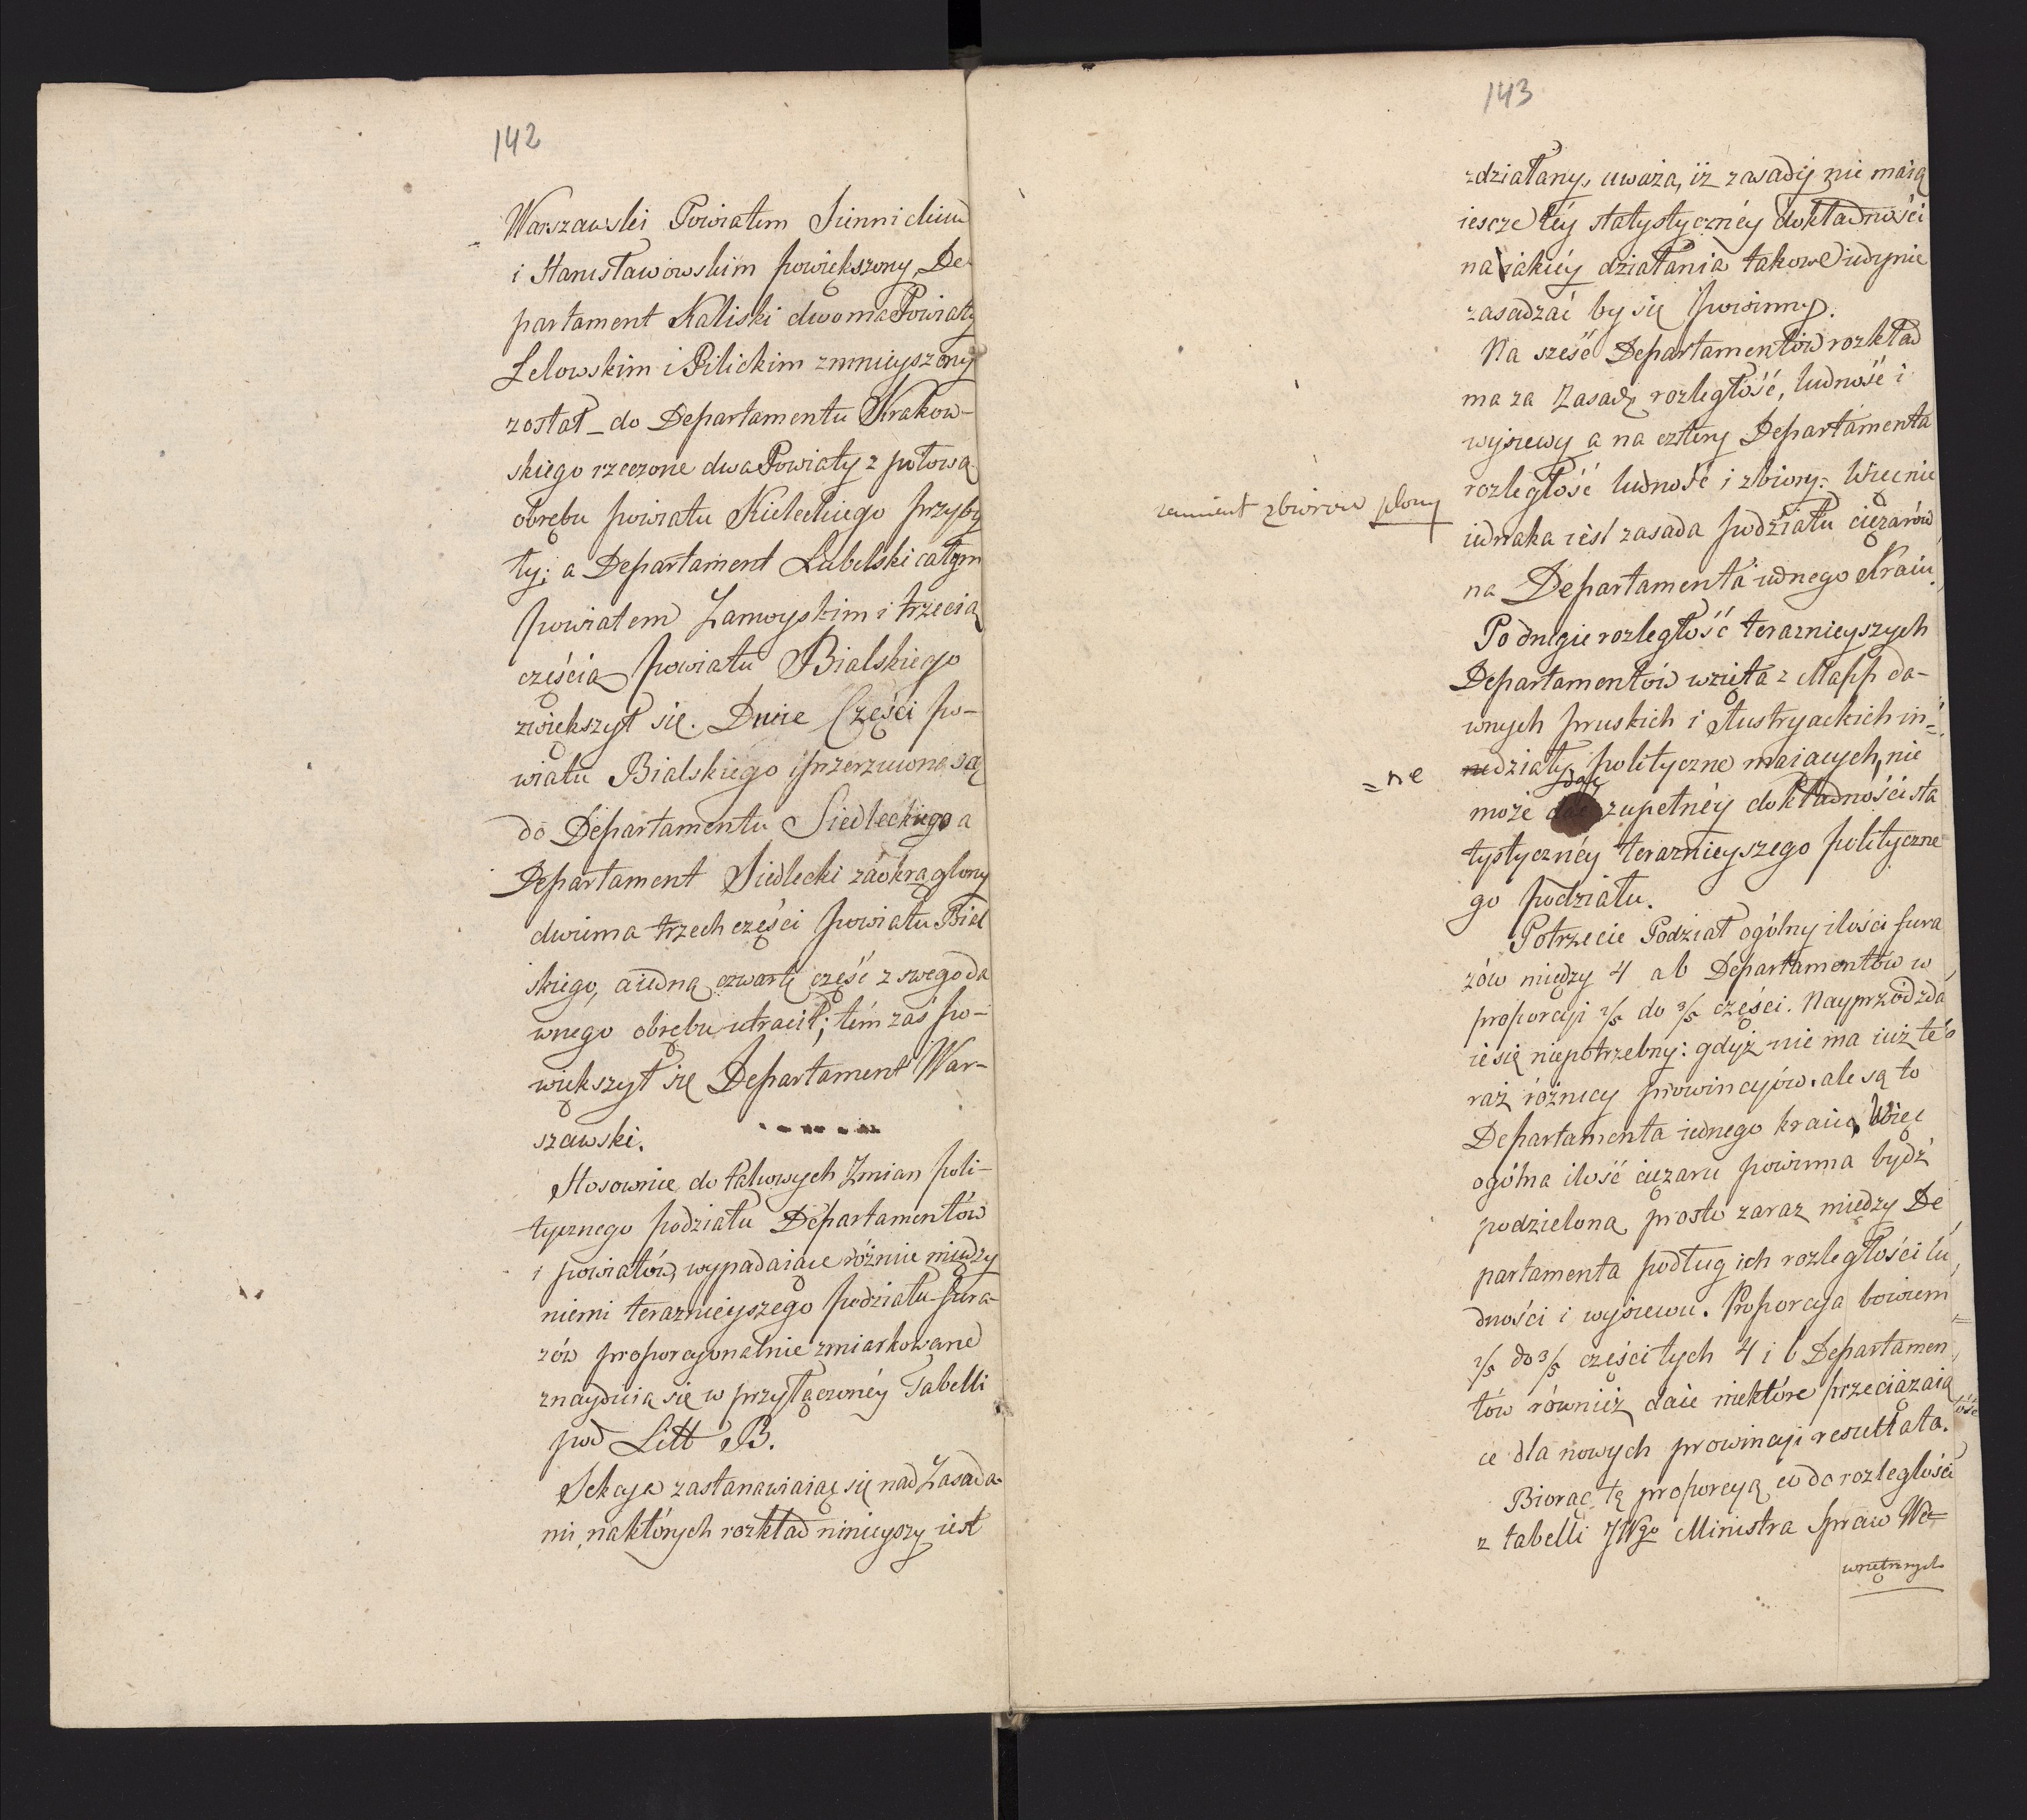 142
Warszawski Powiatem Siennickim
i Stanisławowskim powiększony, De-
partament Kaliski dwoma Powiaty
Lelowskim i Pilickim zmnieyszony
został _ do Departamentu Krakow-
skiego rzeczone dwa Powiaty z połową
obrębu powiatu Kieleckiego przyby
ły; a Departament Lubelski całym
powiatem Zamoyskim i trzecią
częścią powiatu Bialskiego
zwiększył się. Dwie Części po-
wiatu Bialskiego przerzucone są
do Departamentu Siedleckiego a
Departament Siedlecki zaokrąglony
dwiema trzech części powiatu Bial
skiego, a iedną czwartę część z swego da
wnego obrębu utracił; tém zaś po-
większył się Departament War-
szawski.
Stosownie do takowych Zmian poli-
tycznego podziału Departamentów
i powiatów, wypadaiące różnice między
niemi teraznieyszego podziału fura-
zów proporcyonalnie zmiarkowane
znayduią się w przyłączonéy Tabelli
pod Litt B.
Sekcya zastanawiaiąc się nad Zasada-
mi, na których rozkład ninieyszy iest
143
zdziałany, uważa, iż zasady nie maią
ieszcze téy statystycznéy dokładności
na iakiéy działania takowe iedynie
zasadzać by się powinny.
Na sześć Departamentów rozkład
ma za Zasadę rozległość, ludność i
wysiewy a na cztery Departamenta
rozległość ludność i zbiory: Więc nie
zamiast zbiorów plony
iednaka iest zasada podziału ciężarów
na Departamenta iednego Kraiu.
Po drugie rozległość teraznieyszych
Departamentów wzięta z Mapp da-
wnych pruskich i Austryackich in=
=ne
działy polityczne maiących, nie
może zupełnéy dokładności sta
tystycznéy teraznieyszego polityczne
go podziału.
Potrzecie Podział ogólny ilości fura
zów między 4 a 6 Departamentów w
proporcyi 2/5 do 3/5 części. Nayprzód zda
ie się niepotrzebny: gdyż nie ma iuż te
raz różnicy prowincyów. ale są to
Departamenta iednego kraiu, Więc
ogólna ilość ciężaru powinna bydź
podzielona prosto zaraz między De
partamenta podług ich rozległości lu
dności i wysiewu. Proporcya bowiem
2/5 do 3/5 części tych 4 i 6 Departamen
tów również daie niektóre przeciążaią
ce dla nowych prowincyi resultata.
Biorąc tę proporcyą co do rozległości
z tabelli JWgo Ministra Spraw We=
wnętrznych